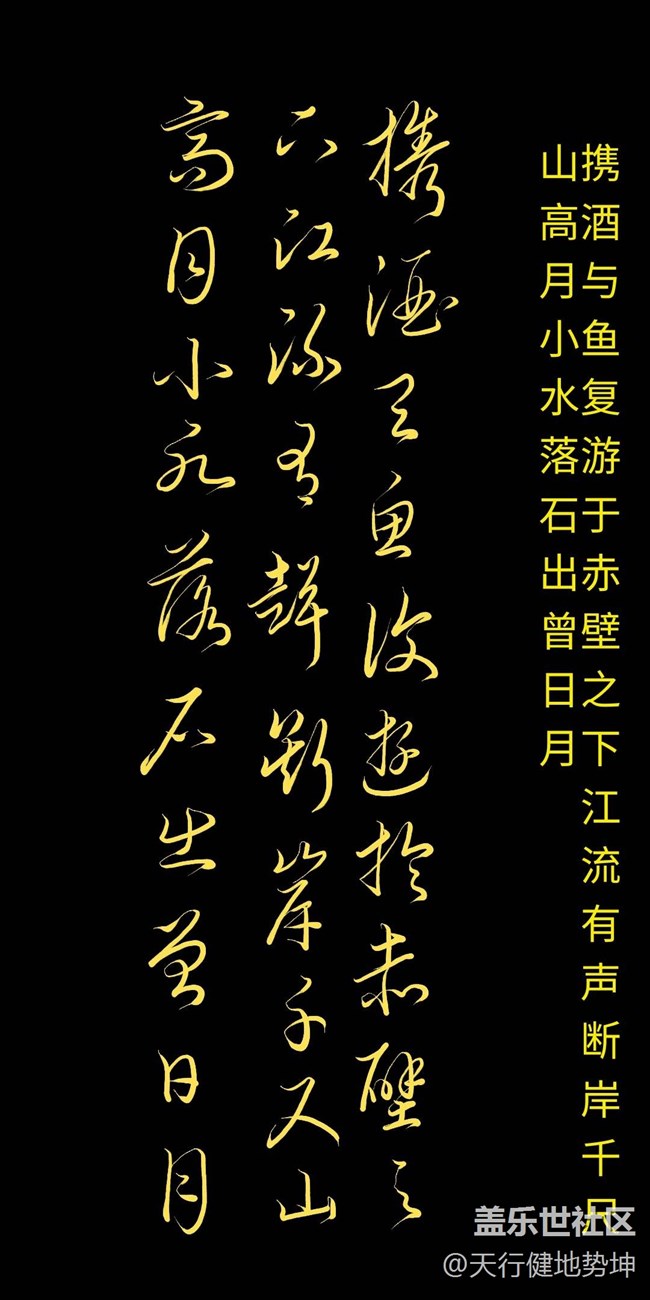 携酒与鱼复游于赤壁之下江流有声断岸千尺
山高月小水落石出曾日月
携酒与鱼復遊於赤壁之
下江流有聲斷岸千尺山
高月小水落石出曾日月
盖乐世社区
@天行健地势坤